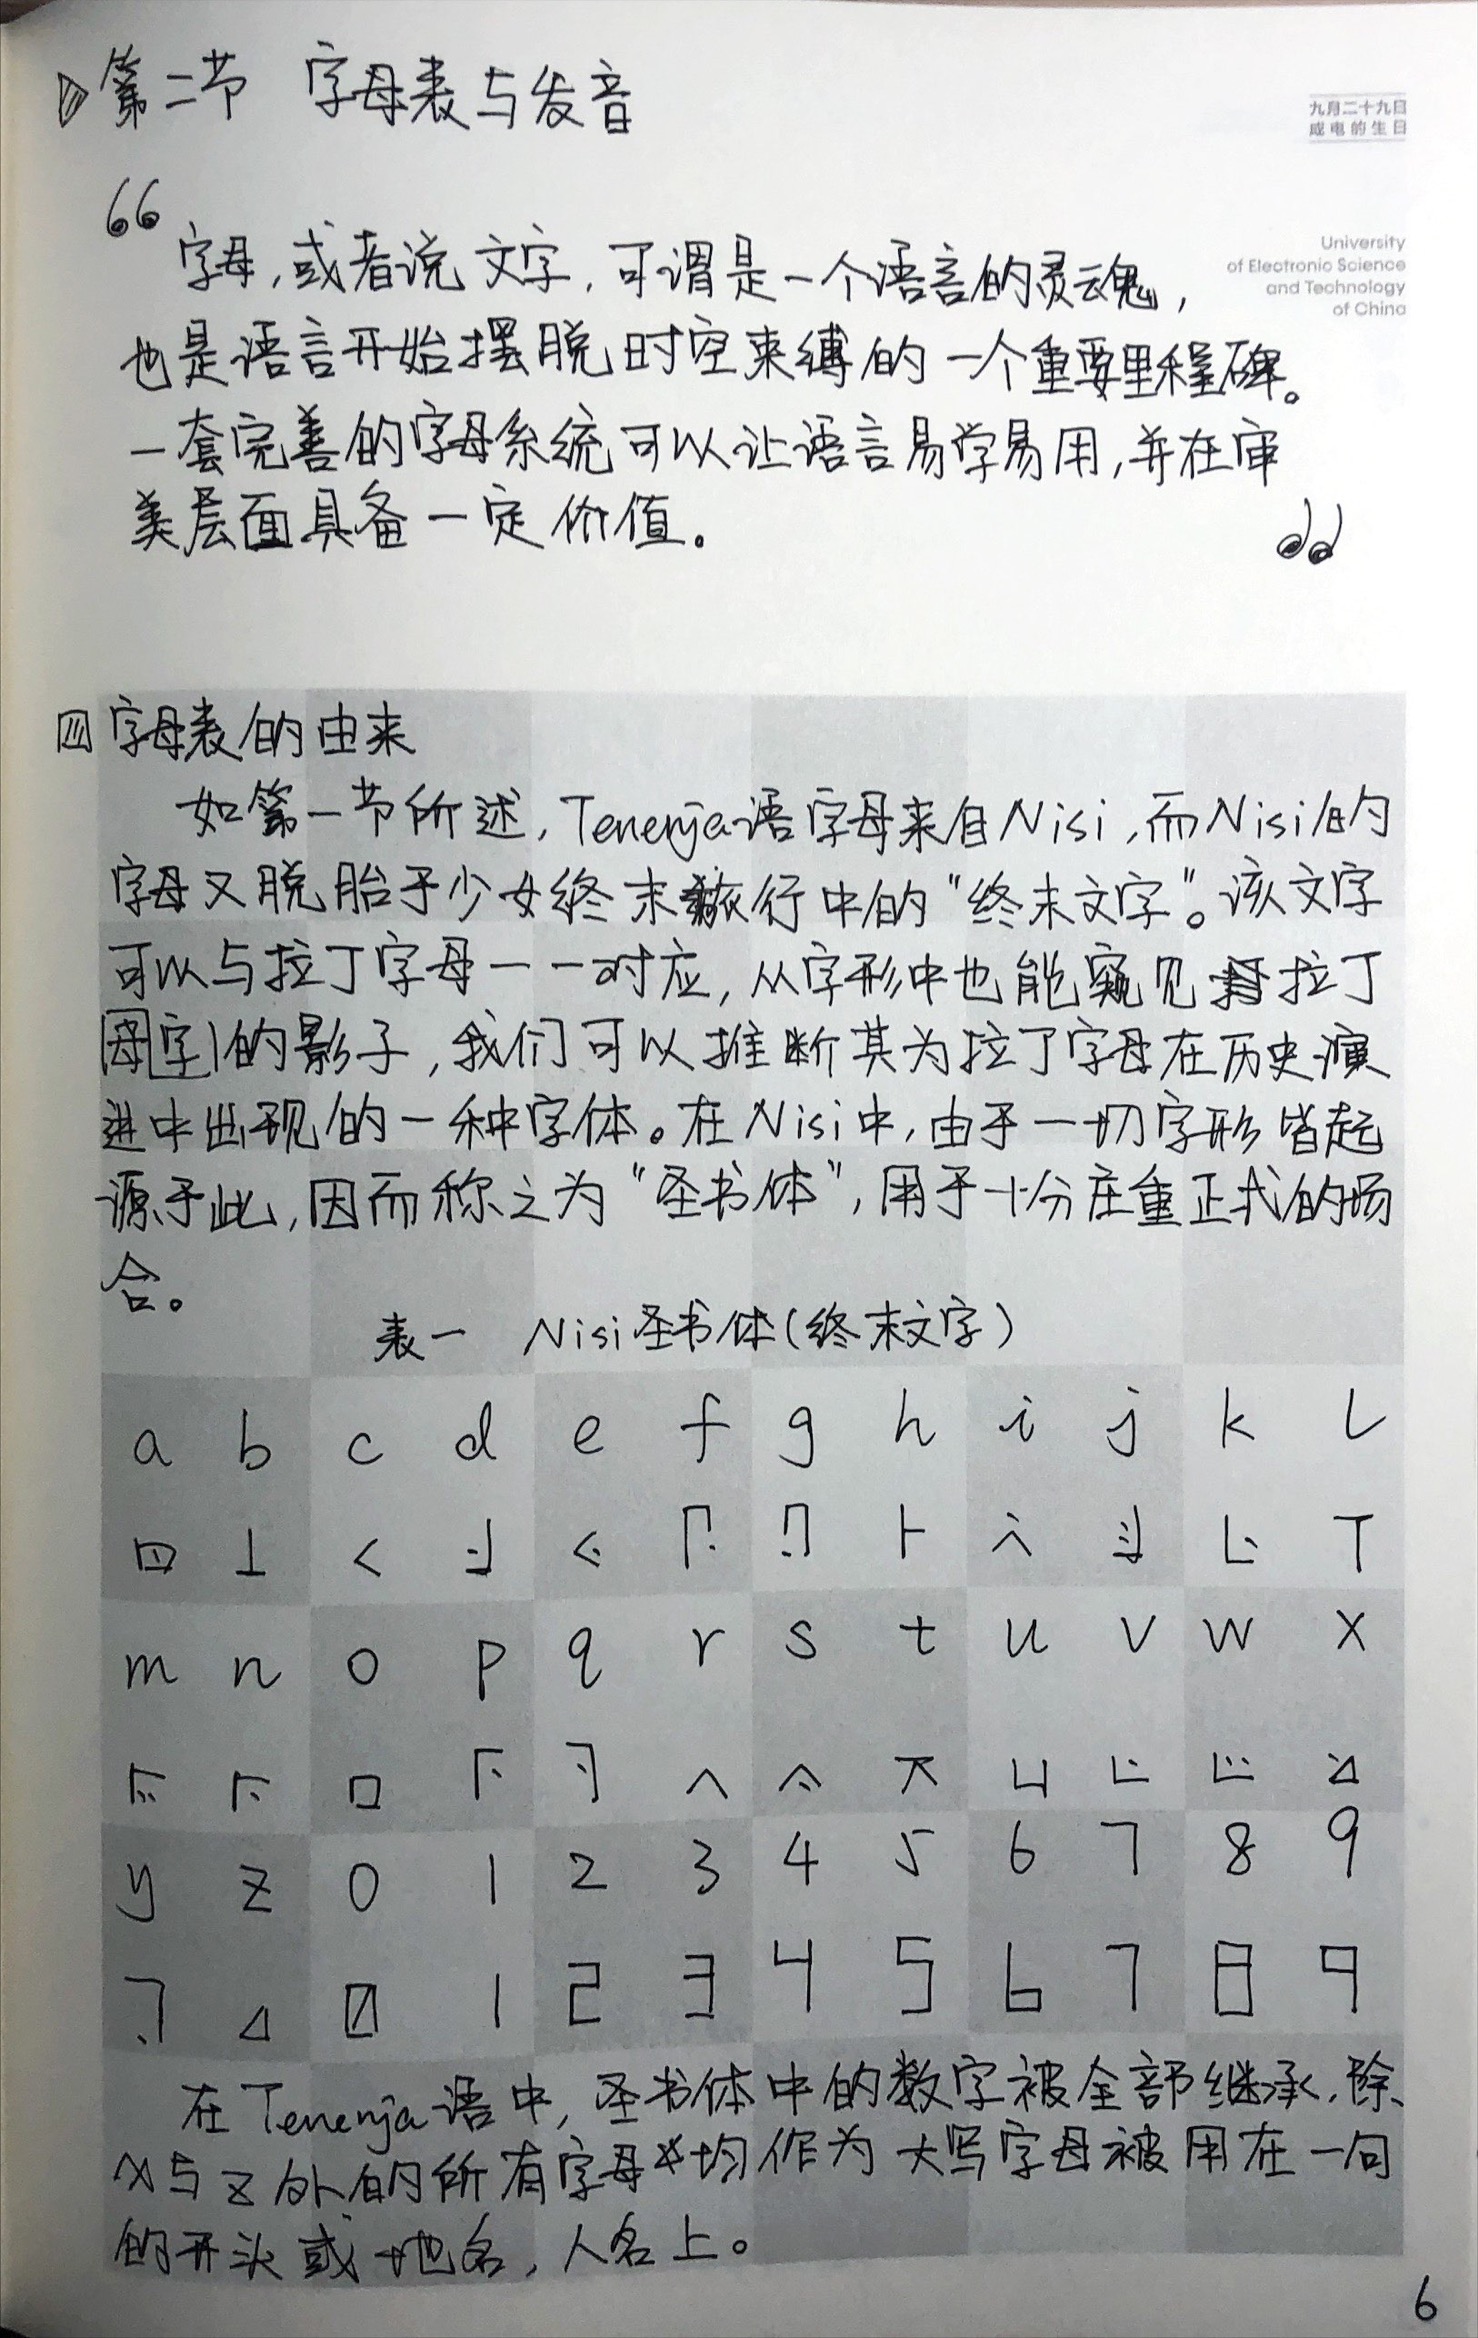 第二节 字母表与发音
九月二十九日
成电的生日
University
of Electronic Science
and Technology
of China
“字母,或者说文字,可谓是一个语言的灵魂,
也是语言开始摆脱时空束缚的一个重要里程碑。
一套完善的字母系统可以让语言易学易用,并在审
美层面具备一定价值。”
字母表的由来
如第一节所述,Tenenja语字母来自Nisi,而Nisi的
字母又脱胎于少女终末旅行中的“终末文字”。该文字
可以与拉丁字母一一对应,从字形中也能窥见拉丁
母字的影子,我们可以推断其为拉丁字母在历史演
进中出现的一种字体。在Nisi中,由于一切字形皆起
源于此,因而称之为“圣书体”,用于十分庄重正式的场
合。
表一 Nisi圣书体(终末文字)
a b c d e f g h i j k l
m n o p q r s t u v w x
y z 0 1 2 3 4 5 6 7 8 9
0 1 2 3 4 5 6 7 8 9
在Tenenja语中,圣书体中的数字被全部继承,除
x与z外的所有字母均作为大写字母被用在一句
的开头或地名,人名上。
6